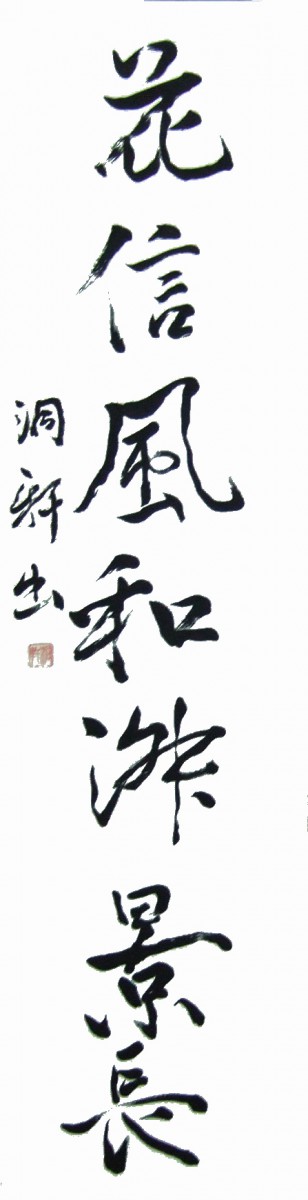 花信風和淑景長
洞軒